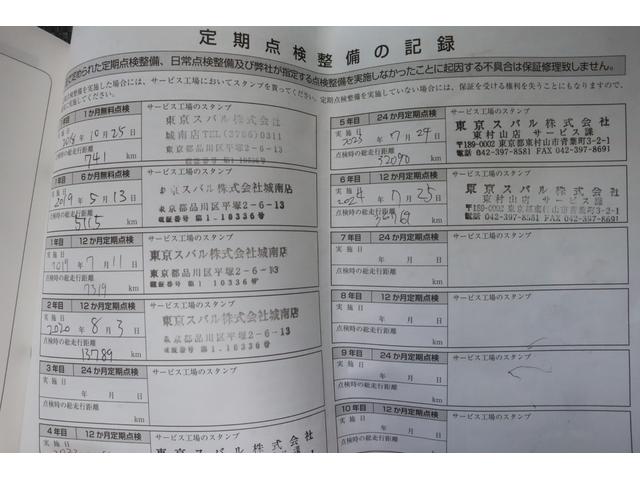 定期点検整備の記録
められた定期点検整備、日常点検整備及び弊社が指定する点検整備を実施しなかったことに起因する不具合は保証修理致しません。
整備を実施した場合には、サービス工場においてスタンプを貰ってください。定期点検整備を実施していない場合には、保証を受ける権利を失うこともなりますので、
実施してください。
1か月無料点検
サービス工場のスタンプ
実施日
年10月25日
点検時の総走行距離
741 km
東京スバル株式会社
城南店TEL(2786)0311
東京都品川区平塚2-6-13
6か月無料点検
サービス工場のスタンプ
実施日
2019年5月13日
点検時の総走行距離
5115 km
東京スバル株式会社城南店
東京都品川区平塚2-6-13
認証番号 第1-10336号
1年目 12か月定期点検
サービス工場のスタンプ
実施日
2019年7月11日
点検時の総走行距離
7319 km
東京スバル株式会社城南店
東京都品川区平塚2-6-13
認証番号 第1-10336号
2年目 12か月定期点検
サービス工場のスタンプ
実施日
2020年8月3日
点検時の総走行距離
13789 km
東京スバル株式会社城南店
東京都品川区平塚2-6-13
認証番号 第1-10336号
3年目 24か月定期点検
サービス工場のスタンプ
実施日 年 月 日
点検時の総走行距離
km
4年目 12か月定期点検
サービス工場のスタンプ
実施日
東京スバル株式会社
5年目 24か月定期点検
サービス工場のスタンプ
実施日
2023年7月29日
点検時の総走行距離
32090 km
東京スバル株式会社
東村山店 サービス課
〒189-0002 東京都東村山市青葉町3-2-1
電話 042-397-8581 FAX 042-397-8691
6年目 12か月定期点検
サービス工場のスタンプ
実施日
2024年7月25日
点検時の総走行距離
km
東京スバル株式会社
東村山店 サービス課
〒189-0002 東京都東村山市青葉町3-2-1
電話 042-397-8581 FAX 042-397-8691
7年目 24か月定期点検
サービス工場のスタンプ
実施日 年 月 日
点検時の総走行距離
km
8年目 12か月定期点検
サービス工場のスタンプ
実施日 年 月 日
点検時の総走行距離
km
9年目 24か月定期点検
サービス工場のスタンプ
実施日 年 月 日
点検時の総走行距離
km
10年目 12か月定期点検
サービス工場のスタンプ
実施日 年 月 日